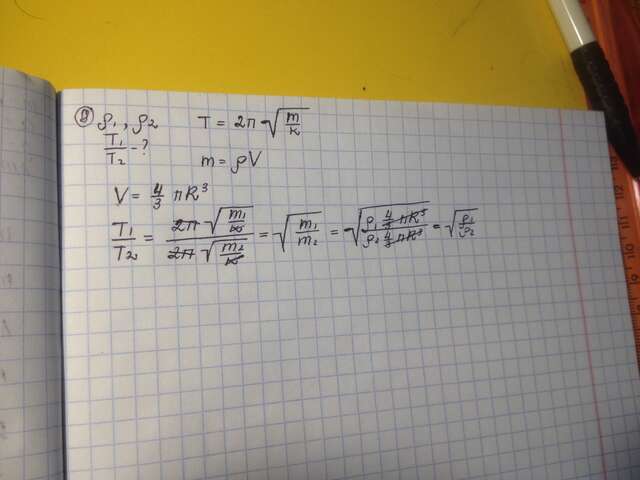 ⑨ ρ₁, ρ₂ T = 2π √(m/k)
T₁/T₂ - ? m = ρV
V = 4/3 πR³
T₁/T₂ = 2π √(m₁/k) / 2π √(m₂/k) = √(m₁/m₂) = √(ρ₁ 4/3 πR³ / ρ₂ 4/3 πR³) = √(ρ₁/ρ₂)